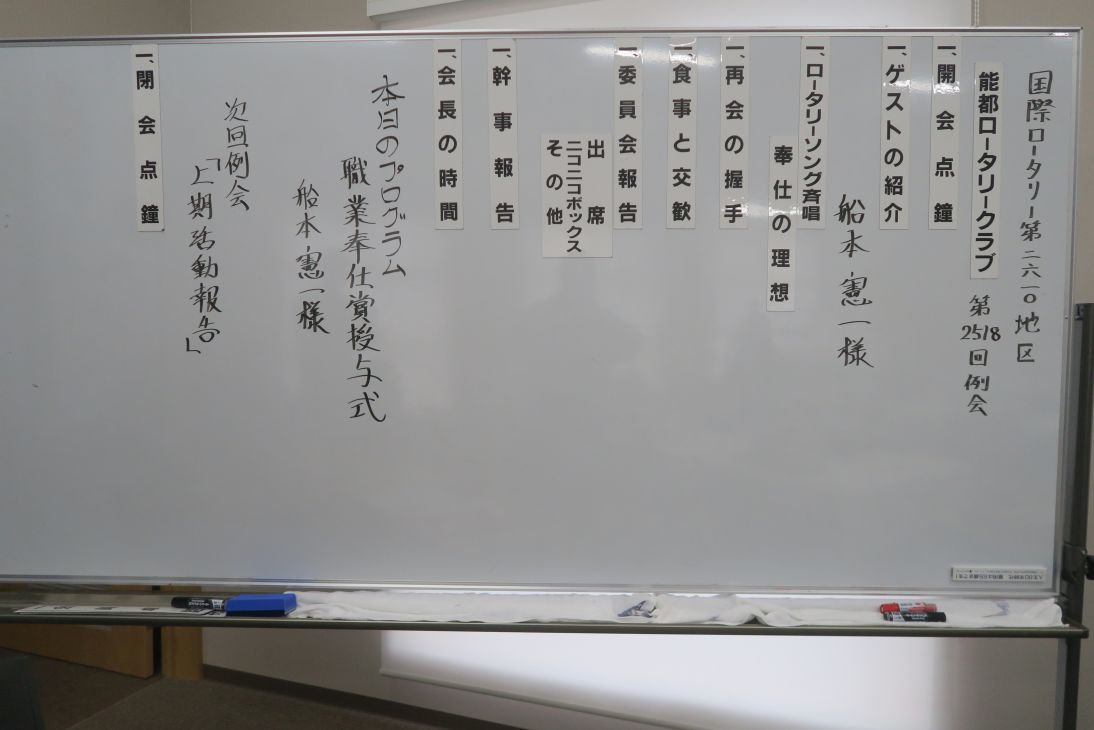 国際ロータリー第二六一〇地区
能都ロータリークラブ 第2518回例会
一、開会点鐘
一、ゲストの紹介
船本憲一様
一、ロータリーソング斉唱
奉仕の理想
一、再会の握手
一、食事と交歓
一、委員会報告
出席
ニコニコボックス
その他
一、幹事報告
一、会長の時間
本日のプログラム
職業奉仕賞授与式
船本憲一様
次回例会
「上期活動報告」
一、閉会点鐘